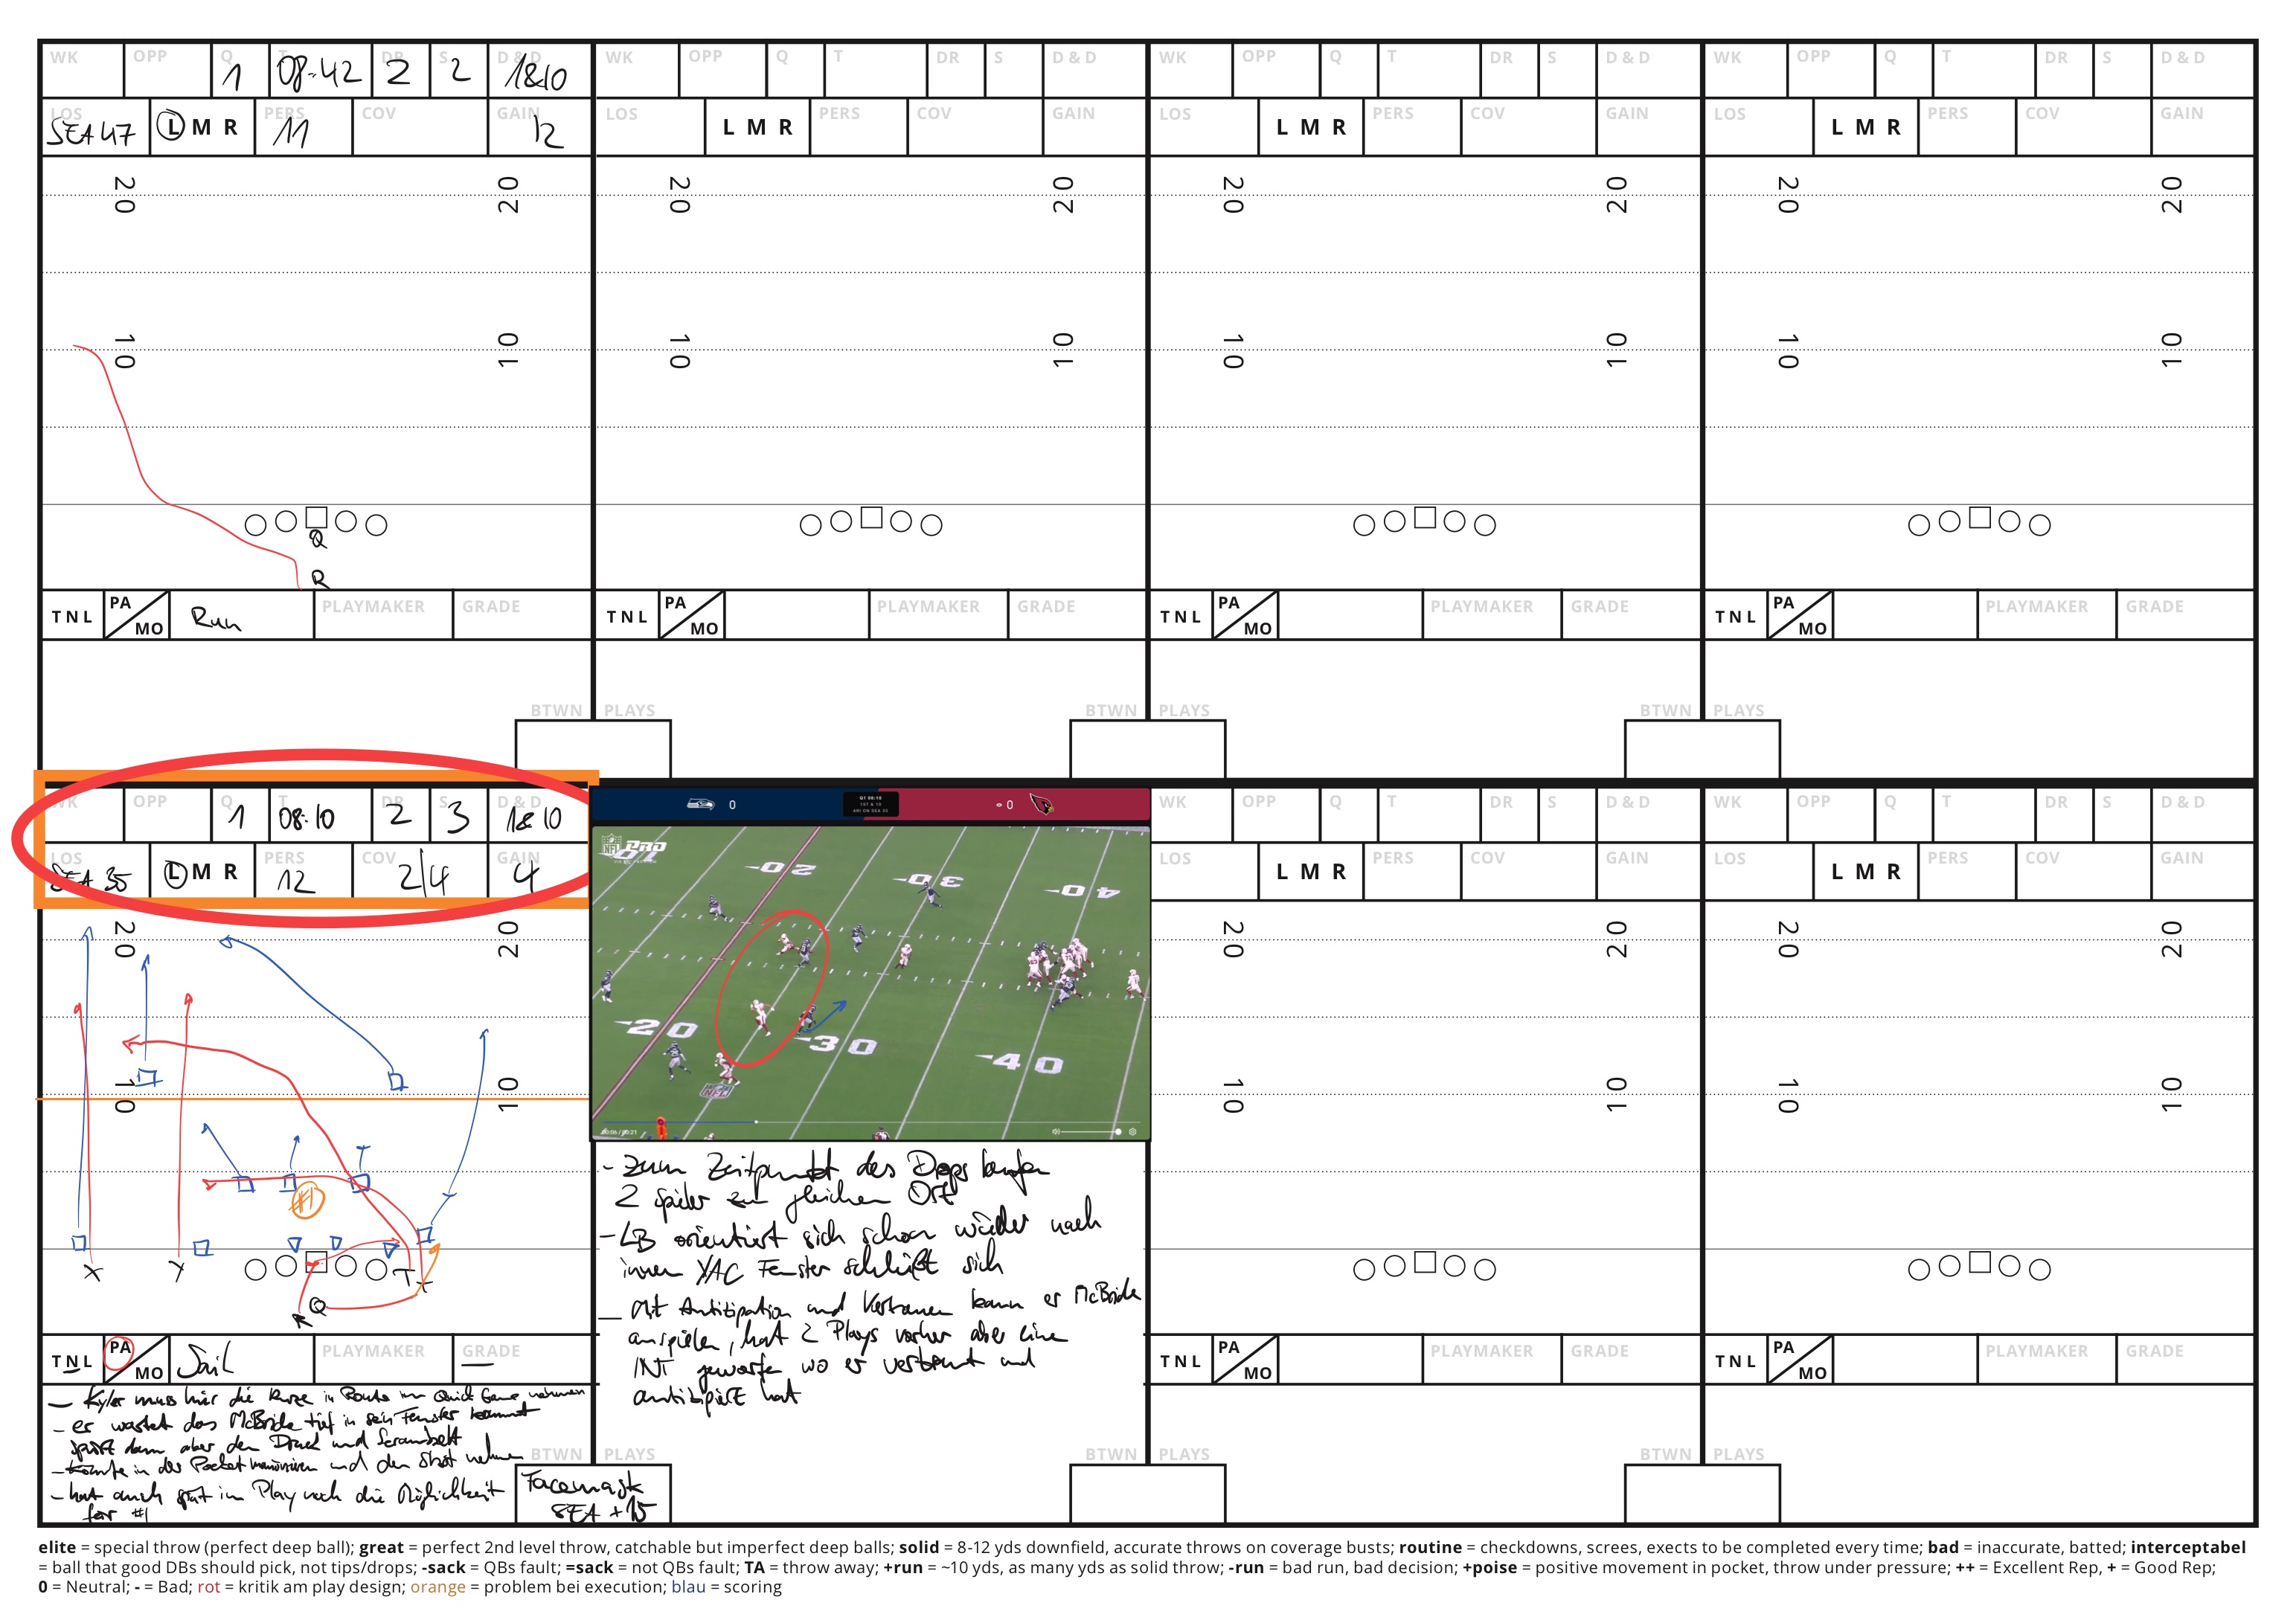 WK OPP Q 1 T 08:42 DR 2 S 2 D & D 1&10
LOS SEA 47 L M R PERS 11 COV GAIN 12
20 20
10 10
Q
R
TNL PA MO Run PLAYMAKER GRADE
BTWN PLAYS
WK OPP Q T DR S D & D
LOS L M R PERS COV GAIN
20 20
10 10
TNL PA MO PLAYMAKER GRADE
BTWN PLAYS
WK OPP Q T DR S D & D
LOS L M R PERS COV GAIN
20 20
10 10
TNL PA MO PLAYMAKER GRADE
BTWN PLAYS
WK OPP Q T DR S D & D
LOS L M R PERS COV GAIN
20 20
10 10
TNL PA MO PLAYMAKER GRADE
WK OPP Q 1 T 08:10 DR 2 S 3 D & D 1&10
LOS SEA 35 L M R PERS 12 COV 2/4 GAIN 4
20 20
10 10
#1
X Y T
Q
R
TNL PA MO Sail PLAYMAKER GRADE –
– Kyler muss hier die kurze in Route im Quick Game nehmen
– er wartet das McBride tief in sein Fenster kommt
spürt dann aber den Druck und Scrambelt
– könnte in der Pocket manövrieren und den Shot nehmen
– hat auch spät im Play noch die Möglichkeit
für #1
BTWN PLAYS
Facemask
SEA +15
0 Q1 08:10 0
1ST & 10
ARI ON SEA 35
NFL PRO
20 30 40
20 30 40
NFL
00:06 / 00:21
– Zum Zeitpunkt des Drops laufen
2 Spieler zu gleichen Ort
– LB orientiert sich schon wieder nach
innen YAC Fenster schließt sich
– Mit Antitipation und Vertrauen kann er McBride
anspielen, hat 2 Plays vorher aber eine
INT geworfen wo er vertraut und
antitipiert hat
BTWN PLAYS
WK OPP Q T DR S D & D
LOS L M R PERS COV GAIN
20 20
10 10
TNL PA MO PLAYMAKER GRADE
BTWN PLAYS
WK OPP Q T DR S D & D
LOS L M R PERS COV GAIN
20 20
10 10
TNL PA MO PLAYMAKER GRADE
elite = special throw (perfect deep ball); great = perfect 2nd level throw, catchable but imperfect deep balls; solid = 8-12 yds downfield, accurate throws on coverage busts; routine = checkdowns, screes, exects to be completed every time; bad = inaccurate, batted; interceptabel
= ball that good DBs should pick, not tips/drops; -sack = QBs fault; =sack = not QBs fault; TA = throw away; +run = ~10 yds, as many yds as solid throw; -run = bad run, bad decision; +poise = positive movement in pocket, throw under pressure; ++ = Excellent Rep, + = Good Rep;
0 = Neutral; - = Bad; rot = kritik am play design; orange = problem bei execution; blau = scoring